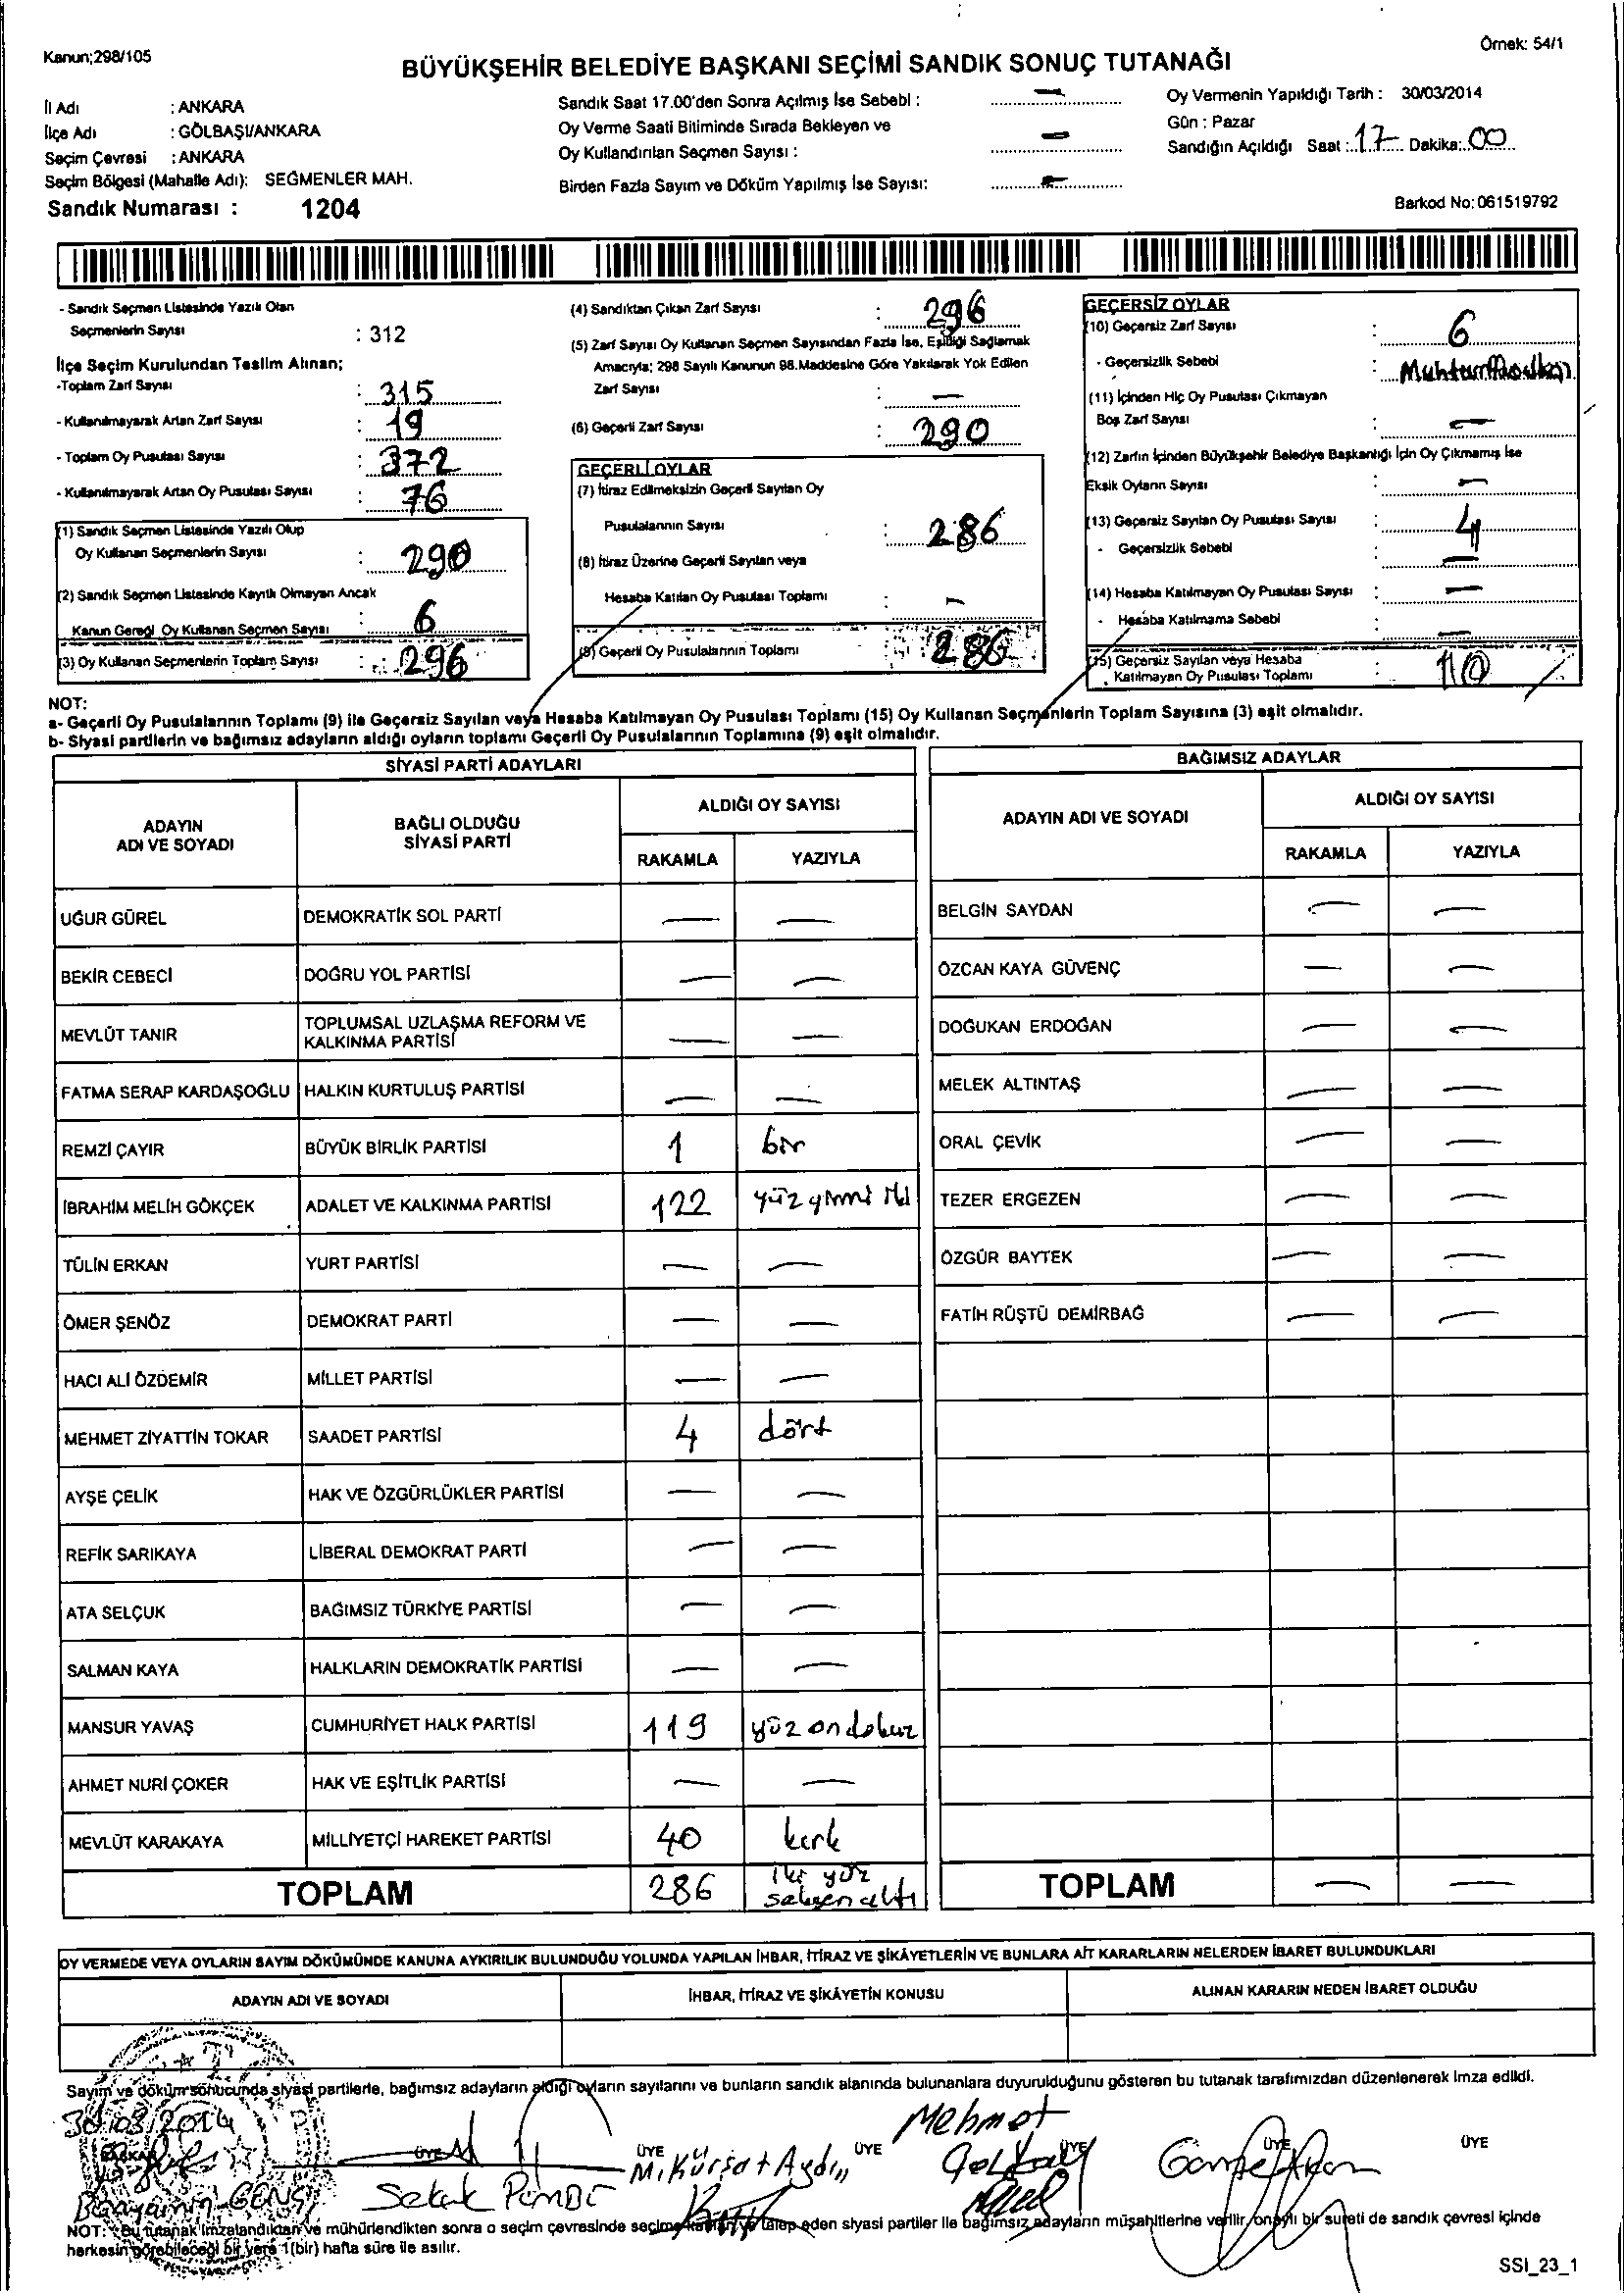 Kanun;298/105
Örnek: 54/1
BÜYÜKŞEHİR BELEDİYE BAŞKANI SEÇİMİ SANDIK SONUÇ TUTANAĞI
İl Adı : ANKARA
İlçe Adı : GÖLBAŞI/ANKARA
Seçim Çevresi : ANKARA
Seçim Bölgesi (Mahalle Adı): SEĞMENLER MAH.
Sandık Numarası : 1204
Sandık Saat 17.00'den Sonra Açılmış İse Sebebi : —
Oy Verme Saati Bitiminde Sırada Bekleyen ve
Oy Kullandırılan Seçmen Sayısı : —
Birden Fazla Sayım ve Döküm Yapılmış İse Sayısı: —
Oy Vermenin Yapıldığı Tarih : 30/03/2014
Gün : Pazar
Sandığın Açıldığı Saat : 17 Dakika: 00
Barkod No: 061519792
- Sandık Seçmen Listesinde Yazılı Olan
Seçmenlerin Sayısı : 312
İlçe Seçim Kurulundan Teslim Alınan;
-Toplam Zarf Sayısı : 315
- Kullanılmayarak Artan Zarf Sayısı : 19
- Toplam Oy Pusulası Sayısı : 372
- Kullanılmayarak Artan Oy Pusulası Sayısı : 76
(1) Sandık Seçmen Listesinde Yazılı Olup
Oy Kullanan Seçmenlerin Sayısı : 290
(2) Sandık Seçmen Listesinde Kayıtlı Olmayan Ancak
Kanun Gereği Oy Kullanan Seçmen Sayısı : 6
(3) Oy Kullanan Seçmenlerin Toplam Sayısı : 296
(4) Sandıktan Çıkan Zarf Sayısı : 296
(5) Zarf Sayısı Oy Kullanan Seçmen Sayısından Fazla İse, Eşitliği Sağlamak
Amacıyla; 298 Sayılı Kanunun 98.Maddesine Göre Yakılarak Yok Edilen
Zarf Sayısı : —
(6) Geçerli Zarf Sayısı : 290
GEÇERLİ OYLAR
(7) İtiraz Edilmeksizin Geçerli Sayılan Oy
Pusulalarının Sayısı : 286
(8) İtiraz Üzerine Geçerli Sayılan veya
Hesaba Katılan Oy Pusulası Toplamı : —
(9) Geçerli Oy Pusulalarının Toplamı : 286
GEÇERSİZ OYLAR
(10) Geçersiz Zarf Sayısı : 6
- Geçersizlik Sebebi :
(11) İçinden Hiç Oy Pusulası Çıkmayan
Boş Zarf Sayısı : —
(12) Zarfın İçinden Büyükşehir Belediye Başkanlığı İçin Oy Çıkmamış İse
Eksik Oyların Sayısı : —
(13) Geçersiz Sayılan Oy Pusulası Sayısı : 4
- Geçersizlik Sebebi : —
(14) Hesaba Katılmayan Oy Pusulası Sayısı : —
- Hesaba Katılmama Sebebi : —
(15) Geçersiz Sayılan veya Hesaba
Katılmayan Oy Pusulası Toplamı : 10
NOT:
a- Geçerli Oy Pusulalarının Toplamı (9) ile Geçersiz Sayılan veya Hesaba Katılmayan Oy Pusulası Toplamı (15) Oy Kullanan Seçmenlerin Toplam Sayısına (3) eşit olmalıdır.
b- Siyasi partilerin ve bağımsız adayların aldığı oyların toplamı Geçerli Oy Pusulalarının Toplamına (9) eşit olmalıdır.
SİYASİ PARTİ ADAYLARI
ADAYIN ADI VE SOYADI BAĞLI OLDUĞU SİYASİ PARTİ ALDIĞI OY SAYISI
RAKAMLA YAZIYLA
UĞUR GÜREL DEMOKRATİK SOL PARTİ — —
BEKİR CEBECİ DOĞRU YOL PARTİSİ — —
MEVLÜT TANIR TOPLUMSAL UZLAŞMA REFORM VE KALKINMA PARTİSİ — —
FATMA SERAP KARDAŞOĞLU HALKIN KURTULUŞ PARTİSİ — —
REMZİ ÇAYIR BÜYÜK BİRLİK PARTİSİ 1 bir
İBRAHİM MELİH GÖKÇEK ADALET VE KALKINMA PARTİSİ 122 yüz yirmi iki
TÜLİN ERKAN YURT PARTİSİ — —
ÖMER ŞENÖZ DEMOKRAT PARTİ — —
HACI ALİ ÖZDEMİR MİLLET PARTİSİ — —
MEHMET ZİYATTİN TOKAR SAADET PARTİSİ 4 dört
AYŞE ÇELİK HAK VE ÖZGÜRLÜKLER PARTİSİ — —
REFİK SARIKAYA LİBERAL DEMOKRAT PARTİ — —
ATA SELÇUK BAĞIMSIZ TÜRKİYE PARTİSİ — —
SALMAN KAYA HALKLARIN DEMOKRATİK PARTİSİ — —
MANSUR YAVAŞ CUMHURİYET HALK PARTİSİ 119 yüz ondokuz
AHMET NURİ ÇOKER HAK VE EŞİTLİK PARTİSİ — —
MEVLÜT KARAKAYA MİLLİYETÇİ HAREKET PARTİSİ 40 kırk
TOPLAM 286 iki yüz seksen altı
BAĞIMSIZ ADAYLAR
ADAYIN ADI VE SOYADI ALDIĞI OY SAYISI
RAKAMLA YAZIYLA
BELGİN SAYDAN — —
ÖZCAN KAYA GÜVENÇ — —
DOĞUKAN ERDOĞAN — —
MELEK ALTINTAŞ — —
ORAL ÇEVİK — —
TEZER ERGEZEN — —
ÖZGÜR BAYTEK — —
FATİH RÜŞTÜ DEMİRBAĞ — —
TOPLAM — —
OY VERMEDE VEYA OYLARIN SAYIM DÖKÜMÜNDE KANUNA AYKIRILIK BULUNDUĞU YOLUNDA YAPILAN İHBAR, İTİRAZ VE ŞİKÂYETLERİN VE BUNLARA AİT KARARLARIN NELERDEN İBARET BULUNDUKLARI
ADAYIN ADI VE SOYADI İHBAR, İTİRAZ VE ŞİKÂYETİN KONUSU ALINAN KARARIN NEDEN İBARET OLDUĞU
Sayım ve döküm sonucunda siyasi partilerle, bağımsız adayların aldığı oyların sayılarını ve bunların sandık alanında bulunanlara duyurulduğunu gösteren bu tutanak tarafımızdan düzenlenerek imza edildi.
30/03/2014
BAŞKAN ÜYE ÜYE ÜYE ÜYE ÜYE ÜYE
M. Kürşat Aydın
Mehmet
NOT: Bu tutanak imzalandıktan ve mühürlendikten sonra o seçim çevresinde seçime katılan ve talep eden siyasi partiler ile bağımsız adayların müşahitlerine verilir, onaylı bir sureti de sandık çevresi içinde
herkesin görebileceği bir yere 1(bir) hafta süre ile asılır.
SSI_23_1